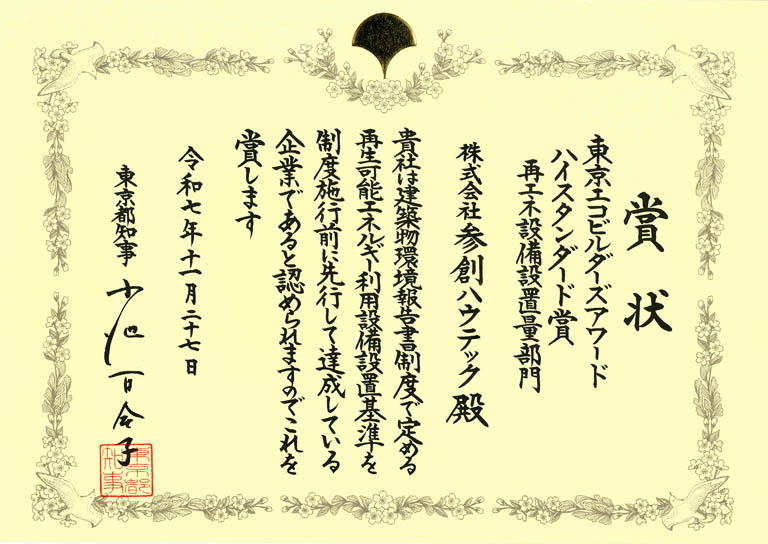 賞状
東京エコビルダーズアワード
ハイスタンダード賞
再エネ設備設置量部門
株式会社参創ハウテック殿
貴社は建築物環境報告書制度で定める
再生可能エネルギー利用設備設置基準を
制度施行前に先行して達成している
企業であると認められますのでこれを
賞します
令和七年十一月二十七日
東京都知事 小池百合子
東京都知事